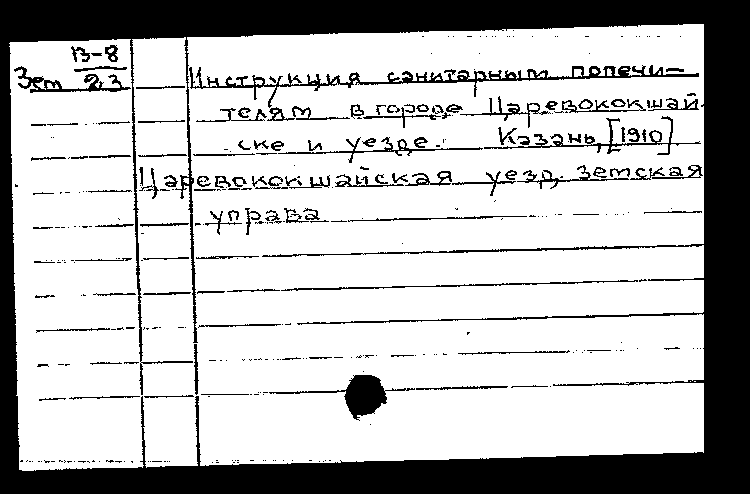 В-8
Зет 23
Инструкция санитарным попечи-
телям в городе Царевококшай-
ске и уезде. Казань, [1910]
Царевококшайская уезд. земская
управа